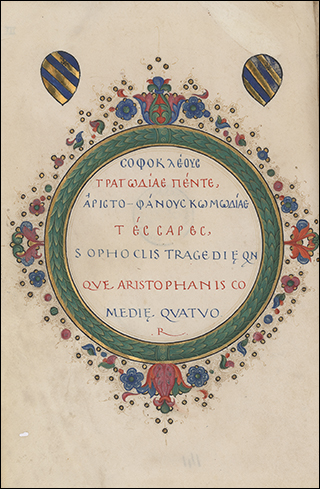 ΣΟΦΟΚΛΈΟΥΣ
ΤΡΑΓΩΔΊΑΕ ΠΈΝΤΕ,
ἈΡΙΣΤΟ-ΦΆΝΟΥΣ ΚΩΜΩΔΊΑΕ
ΤΈΣΣΑΡΕΣ,
SOPHOCLIS TRAGEDIĘ QVIN
QVE ARISTOPHANIS CO
MEDIĘ QVATVO
R